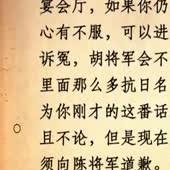 宴会厅，如果你仍
心有不服，可以进
诉冤，胡将军会不
里面那么多抗日名
为你刚才的这番话
且不论，但是现在
须向陈将军道歉。